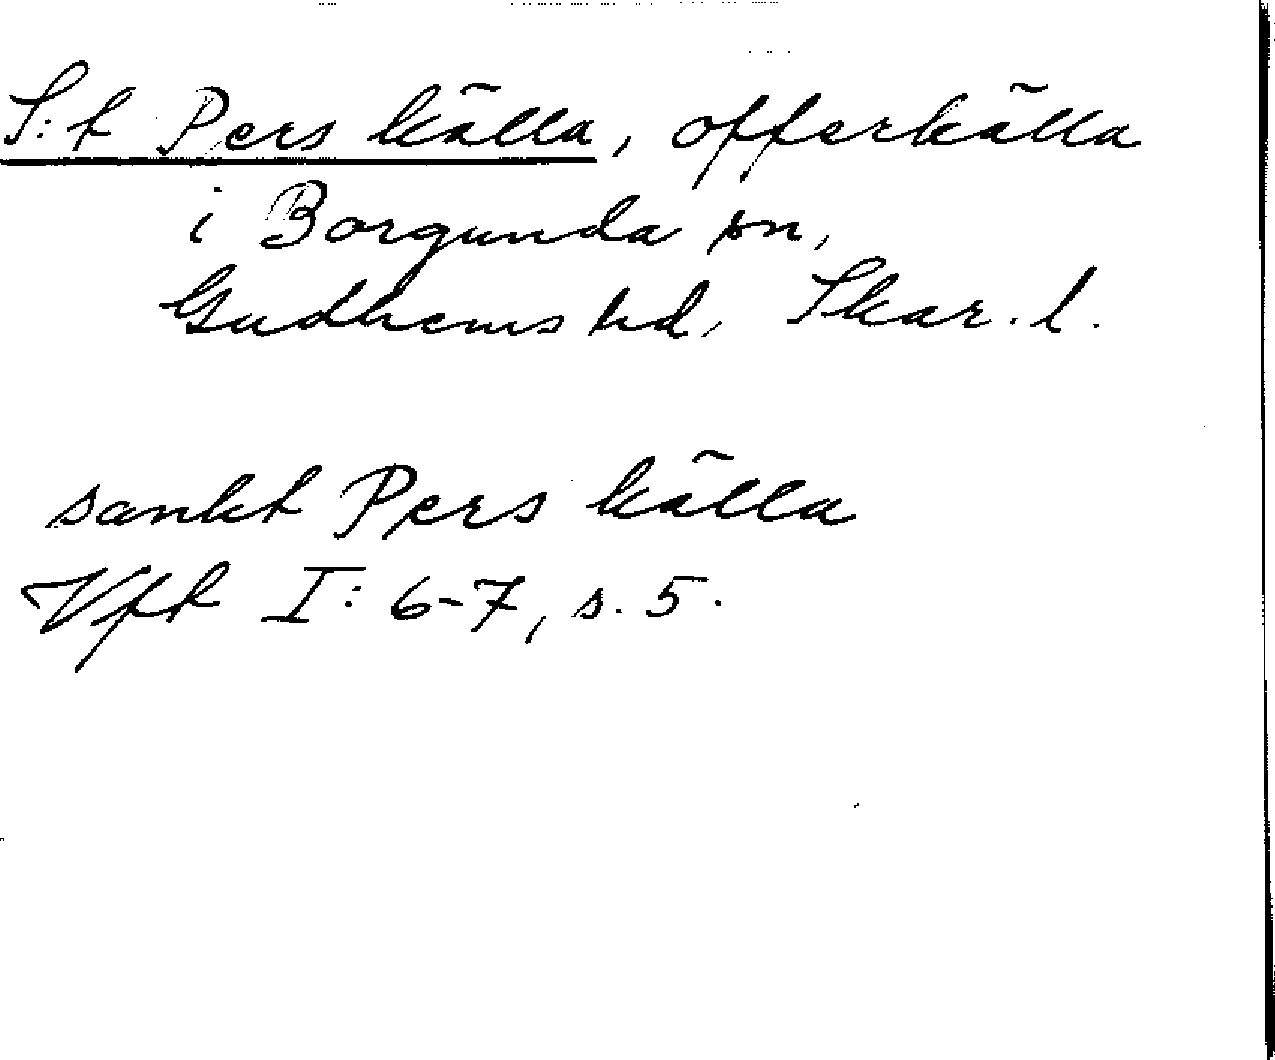 S:t Pers källa, offerkälla
i Borgunda sn,
Gudhems hd, Skar. l.
sankt Pers källa
Vft I: 6-7, s. 5.